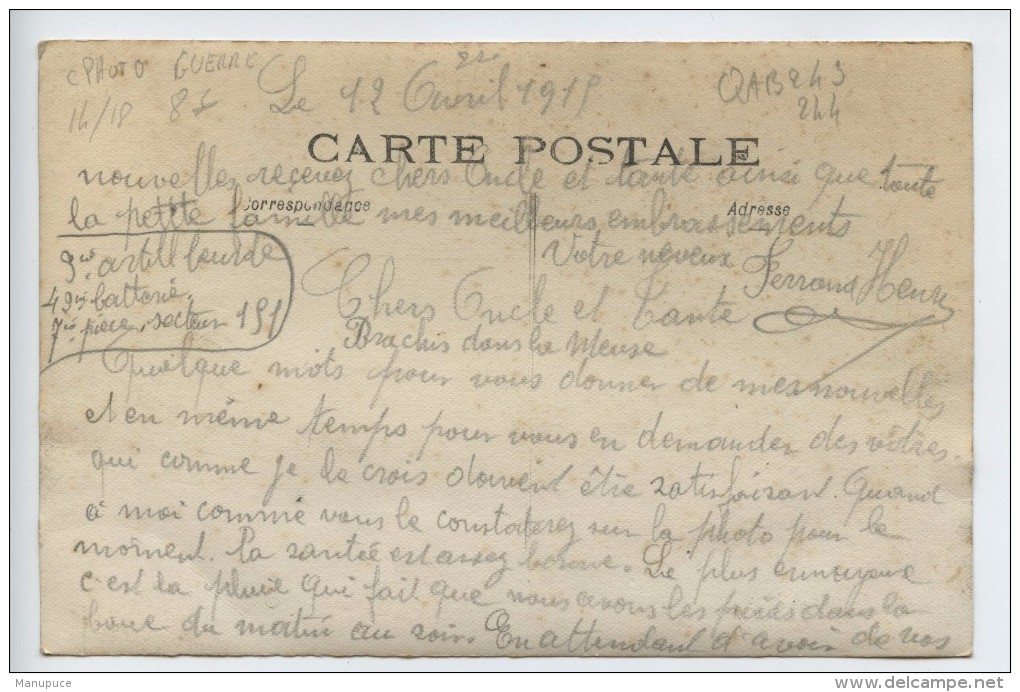 CPHOTO GUERRE
14/18 8£
Le 12 Avril 1915
QAB243
244
CARTE POSTALE
nouvelles recevez chers Oncle et tante ainsi que toute
Correspondance
Adresse
la petite famille mes meilleurs embrassements
Votre neveux Ferrand Henri
9ie artill lourde
42ie batterie
7ie pièce, secteur 151
Chers Oncle et Tante
dans la Meuse
Quelque mots pour vous donner de mes nouvelles
et en même temps pour vous en demander des vôtres
qui comme je le crois doivent être satisfaisant. Quand
à moi comme vous le constaterez sur la photo pour le
moment. la santée est assez bonne. Le plus ennuyeux
c'est la pluie qui fait que nous avons les pieds dans la
boue du matin au soir. En attendant d'avoir de vos
Manupuce
www.delcampe.net